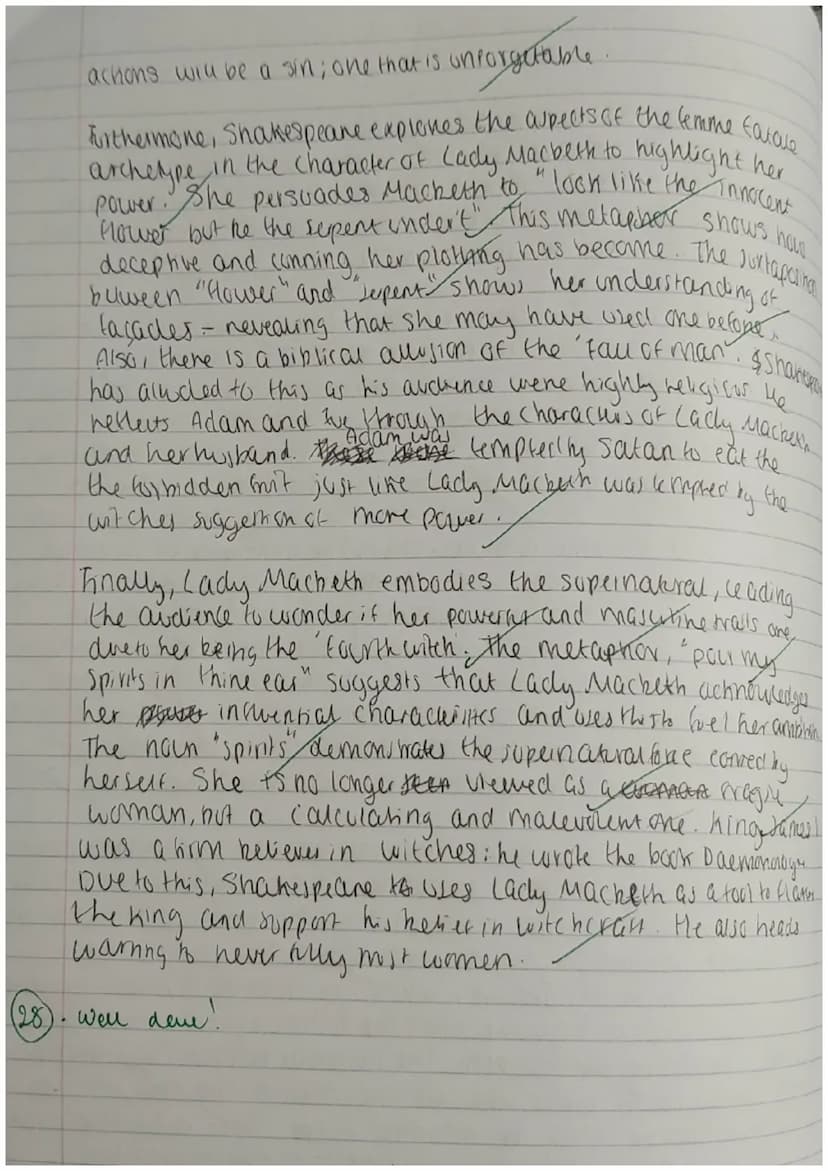 actions will be a sin; one that is unforgetable.
Furthermore, Shakespeare explores the aspects of the femme fatale
archetype in the character of Lady Macbeth to highlight her
power. She persuades Macbeth to "look like the innocent
flower but be the serpent under't". This metaphor shows how
deceptive and cunning her plotting has become. The juxtaposition
between "flower" and "serpent" shows her understanding of
façades - revealing that she may have used one before.
Also, there is a biblical allusion of the 'Fall of man'. Shakespeare
has alluded to this as his audience were highly religious. He
reflects Adam and Eve through the characters of Lady Macbeth
and her husband. Adam was tempted by Satan to eat the
the forbidden fruit just like Lady Macbeth was tempted by the
witches suggestion of more power.
Finally, Lady Macbeth embodies the supernatural, leading
the audience to wonder if her powerful and masculine traits are
due to her being the 'fourth witch'. The metaphor, "pour my
spirits in thine ear" suggests that Lady Macbeth acknowledges
her influential characteristics and uses this to fuel her ambition.
The noun "spirits" demonstrates the supernatural force conved by
herself. She is no longer viewed as a fragile
woman, but a calculating and malevolent one. King James I
was a firm believer in witches: he wrote the book Daemonologie
Due to this, Shakespeare uses Lady Macbeth as a tool to flatter
the King and support his belief in witchcraft. He also heads
warning to never fully trust women.
28. Well done!